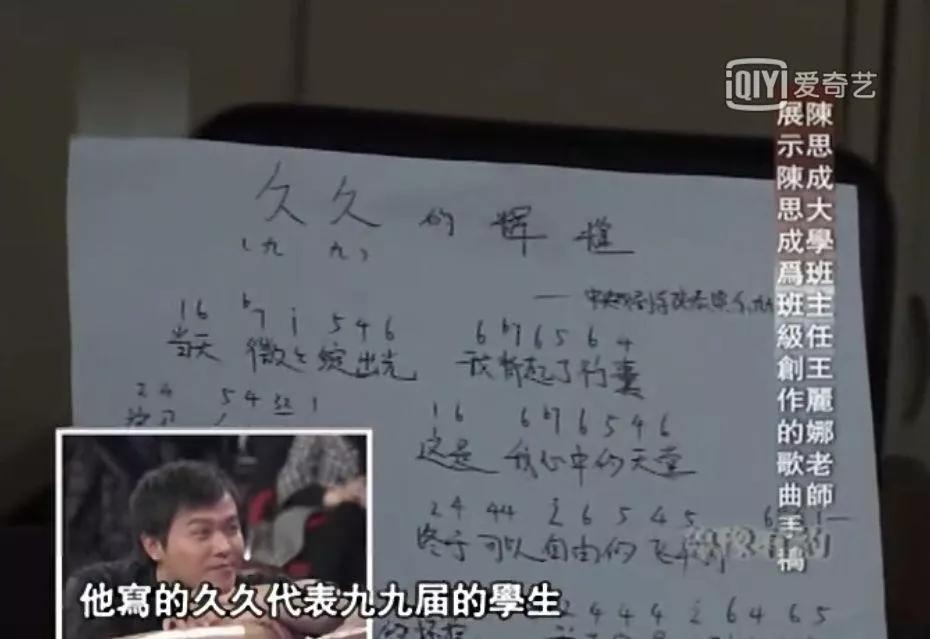 iQIYI 爱奇艺
陳思成大學班主任王麗娜老師
展示陳思成爲班級創作的歌曲手稿
久久的辉煌
(九 九)
16 b7 i 5 4 6 6 b7 6 5 6 4
当天 微微绽出光 我背起了行囊
24 5 4 32 1
16 6 b7 6 5 4 6
这是 我心中的天堂
24 44 2 6 5 4 5
终于可以自由的飞
2 4 4 4 2 6 4 6 5
他寫的久久代表九九届的學生